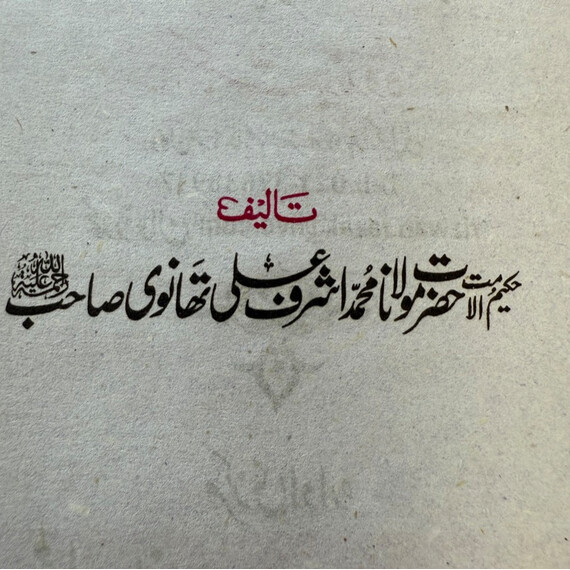 تالیف
حکیم الامت حضرت مولانا محمد اشرف علی تھانوی صاحب رحمۃ اللہ علیہ